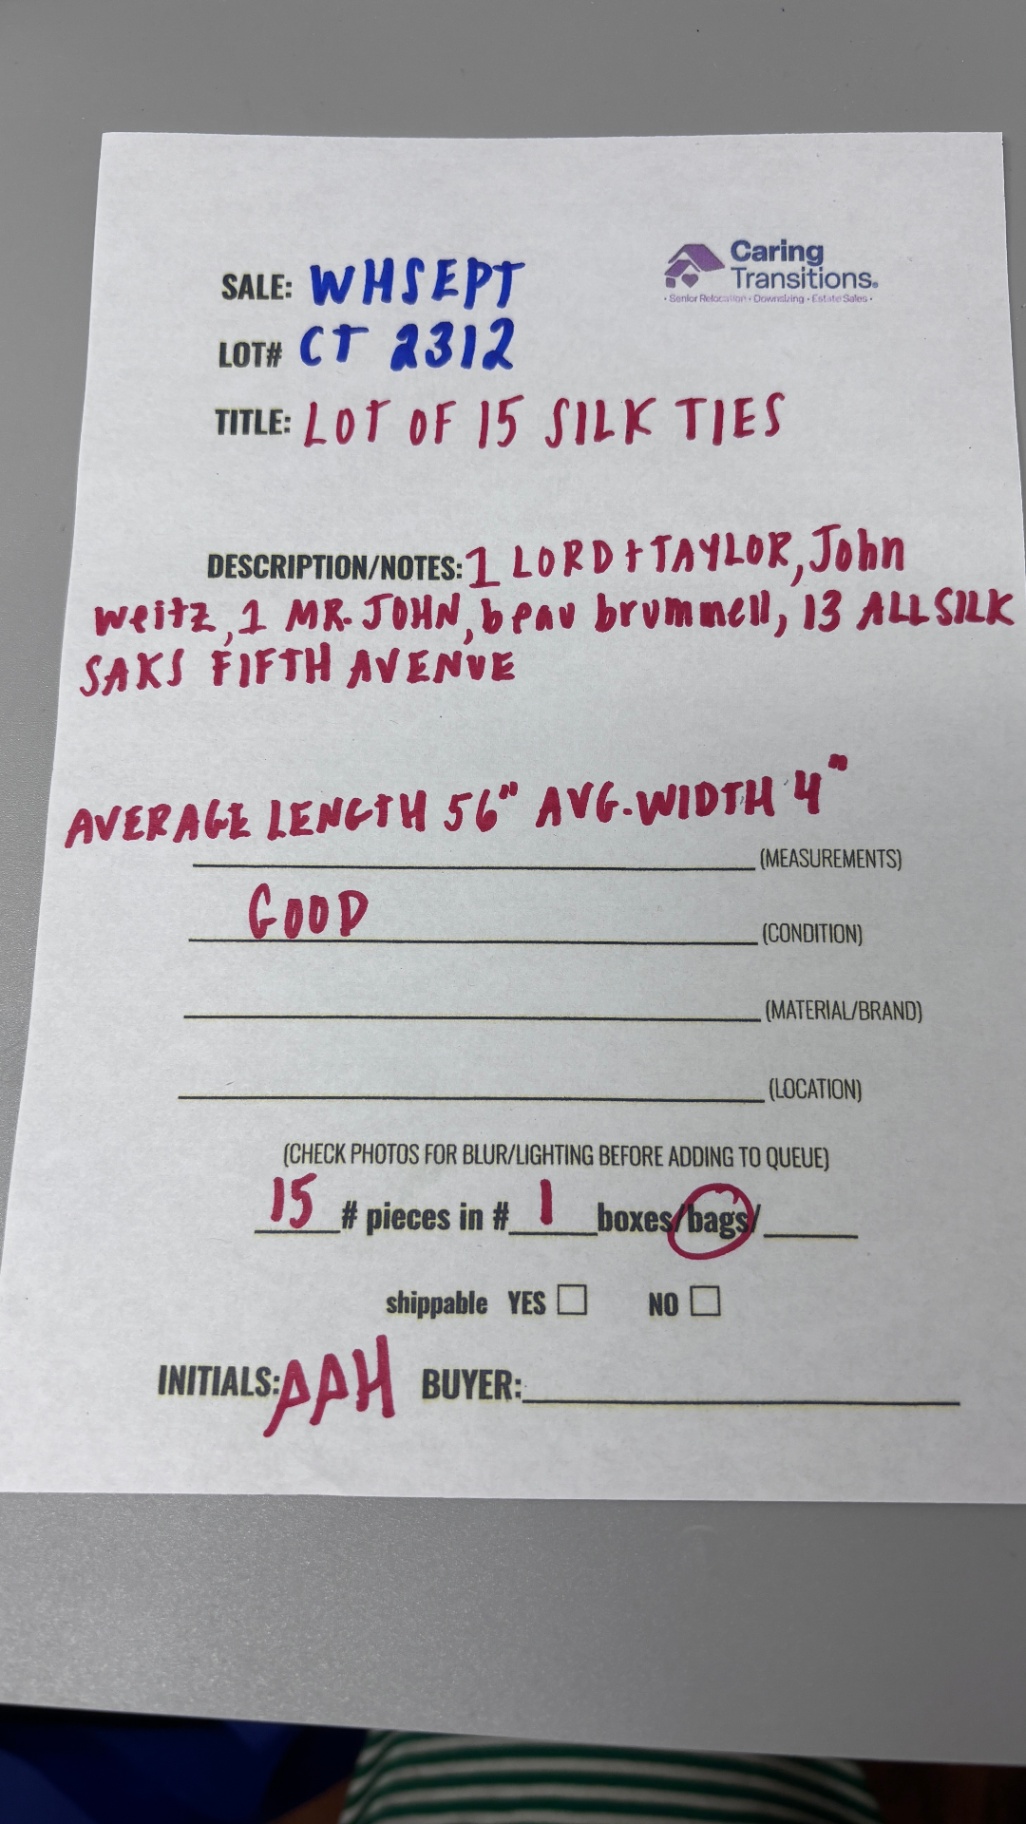 Caring
Transitions®
• Senior Relocation • Downsizing • Estate Sales •
SALE: WHSEPT
LOT# CT 2312
TITLE: LOT OF 15 SILK TIES
DESCRIPTION/NOTES: 1 LORD + TAYLOR, John
weitz, 1 MR. JOHN, beau brummell, 13 ALL SILK
SAKS FIFTH AVENUE
AVERAGE LENGTH 56" AVG. WIDTH 4"
(MEASUREMENTS)
GOOD (CONDITION)
(MATERIAL/BRAND)
(LOCATION)
(CHECK PHOTOS FOR BLUR/LIGHTING BEFORE ADDING TO QUEUE)
15 # pieces in # 1 boxes/bags/
shippable YES ☐ NO ☐
INITIALS: AAH BUYER: